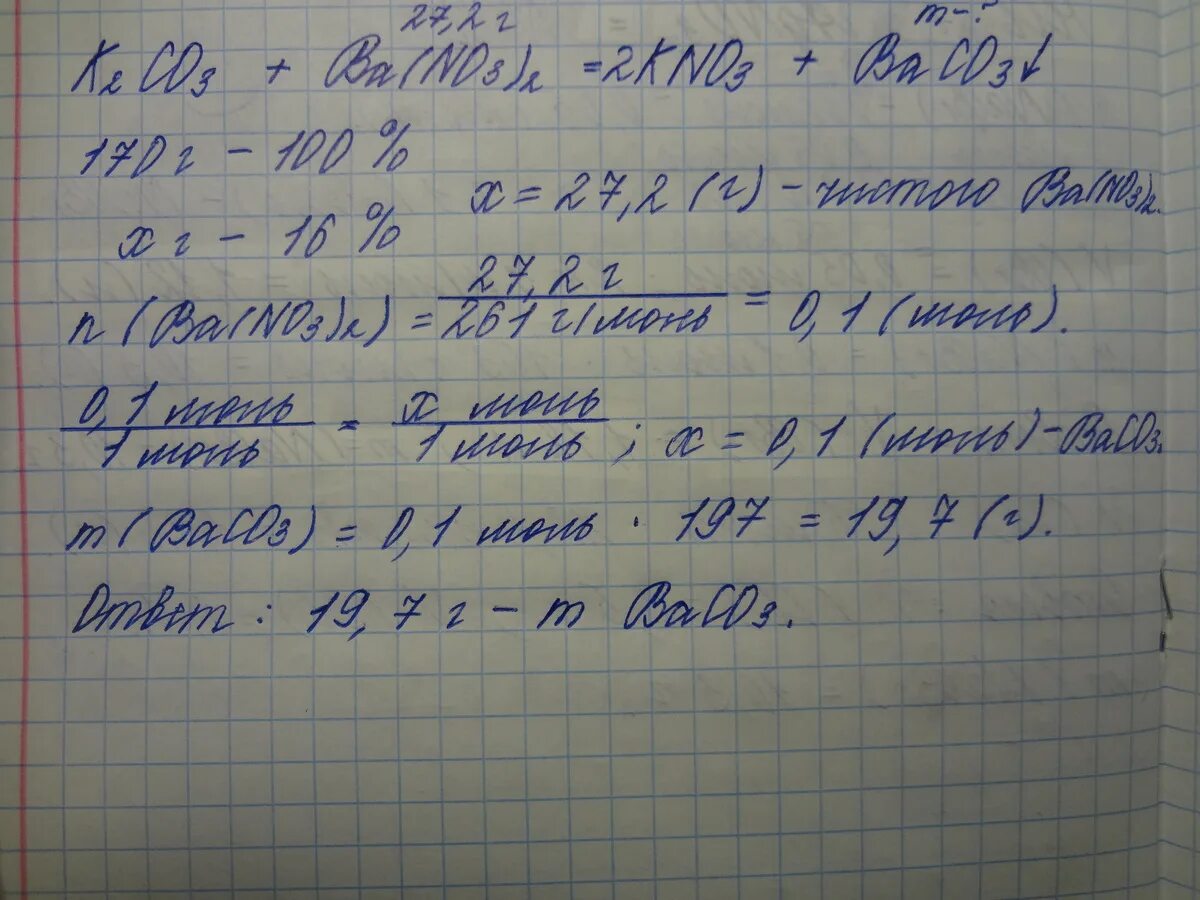 27,2 г m - ?
K₂CO₃ + Ba(NO₃)₂ = 2KNO₃ + BaCO₃↓
170 г - 100 %
x г - 16 %
x = 27,2 (г) - чистого Ba(NO₃)₂.
n (Ba(NO₃)₂) = 27,2 г / 261 г/моль = 0,1 (моль).
0,1 моль / 1 моль = x моль / 1 моль ; x = 0,1 (моль) - BaCO₃.
m (BaCO₃) = 0,1 моль · 197 = 19,7 (г).
Ответ : 19,7 г - m BaCO₃.